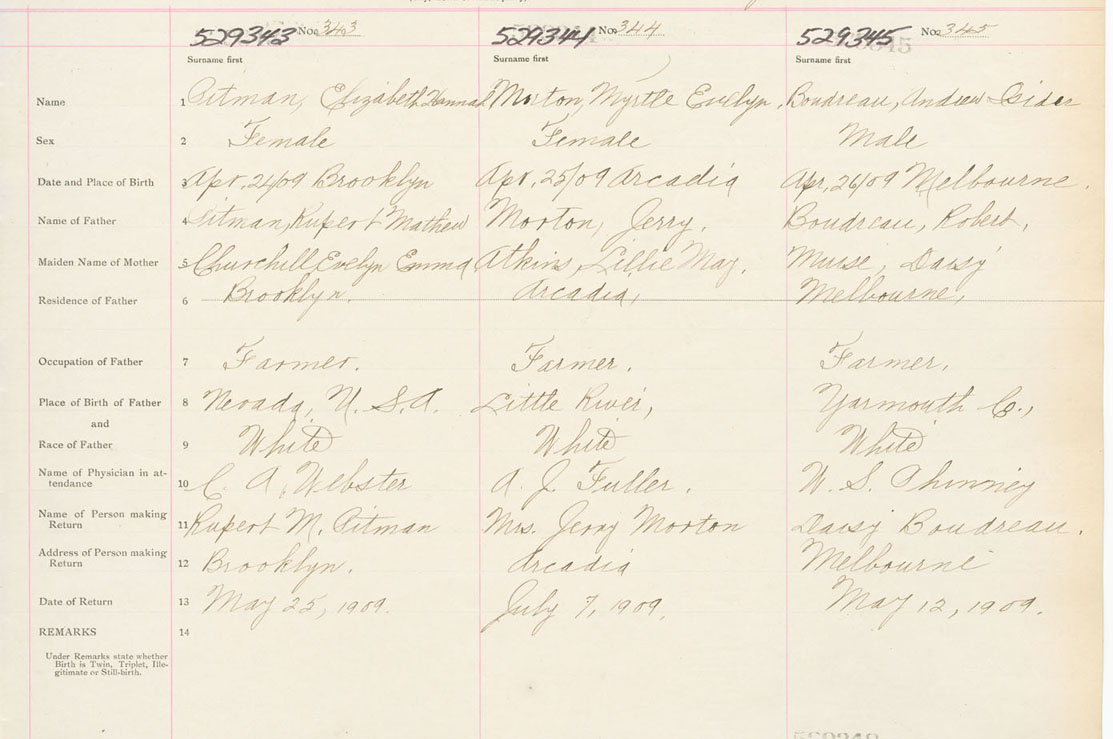 529343 No. 343 529344 No. 344 529345 No. 345
Surname first Surname first Surname first
Name 1 Pitman, Elizabeth Hannah Morton, Myrtle Evelyn, Boudreau, Andrew Isider
Sex 2 Female Female Male
Date and Place of Birth 3 Apr, 24/09 Brooklyn Apr, 25/09 Arcadia Apr, 26/09 Melbourne.
Name of Father 4 Pitman, Rupert Mathew Morton, Jerry, Boudreau, Robert,
Maiden Name of Mother 5 Churchill, Evelyn Emma Atkins, Lillie May, Muise, Daisy
Residence of Father 6 Brooklyn. Arcadia, Melbourne,
Occupation of Father 7 Farmer. Farmer, Farmer,
Place of Birth of Father 8 Nevada, U. S. A. Little River, Yarmouth Co.,
and
Race of Father 9 White White White
Name of Physician in at-
tendance 10 C. A. Webster A. J. Fuller. W. S. Phinney
Name of Person making
Return 11 Rupert M. Pitman Mrs. Jerry Morton Daisy Boudreau.
Address of Person making
Return 12 Brooklyn. Arcadia Melbourne
Date of Return 13 May 25, 1909. July 7, 1909. May 12, 1909.
REMARKS 14
Under Remarks state whether
Birth is Twin, Triplet, Ille-
gitimate or Still-birth.